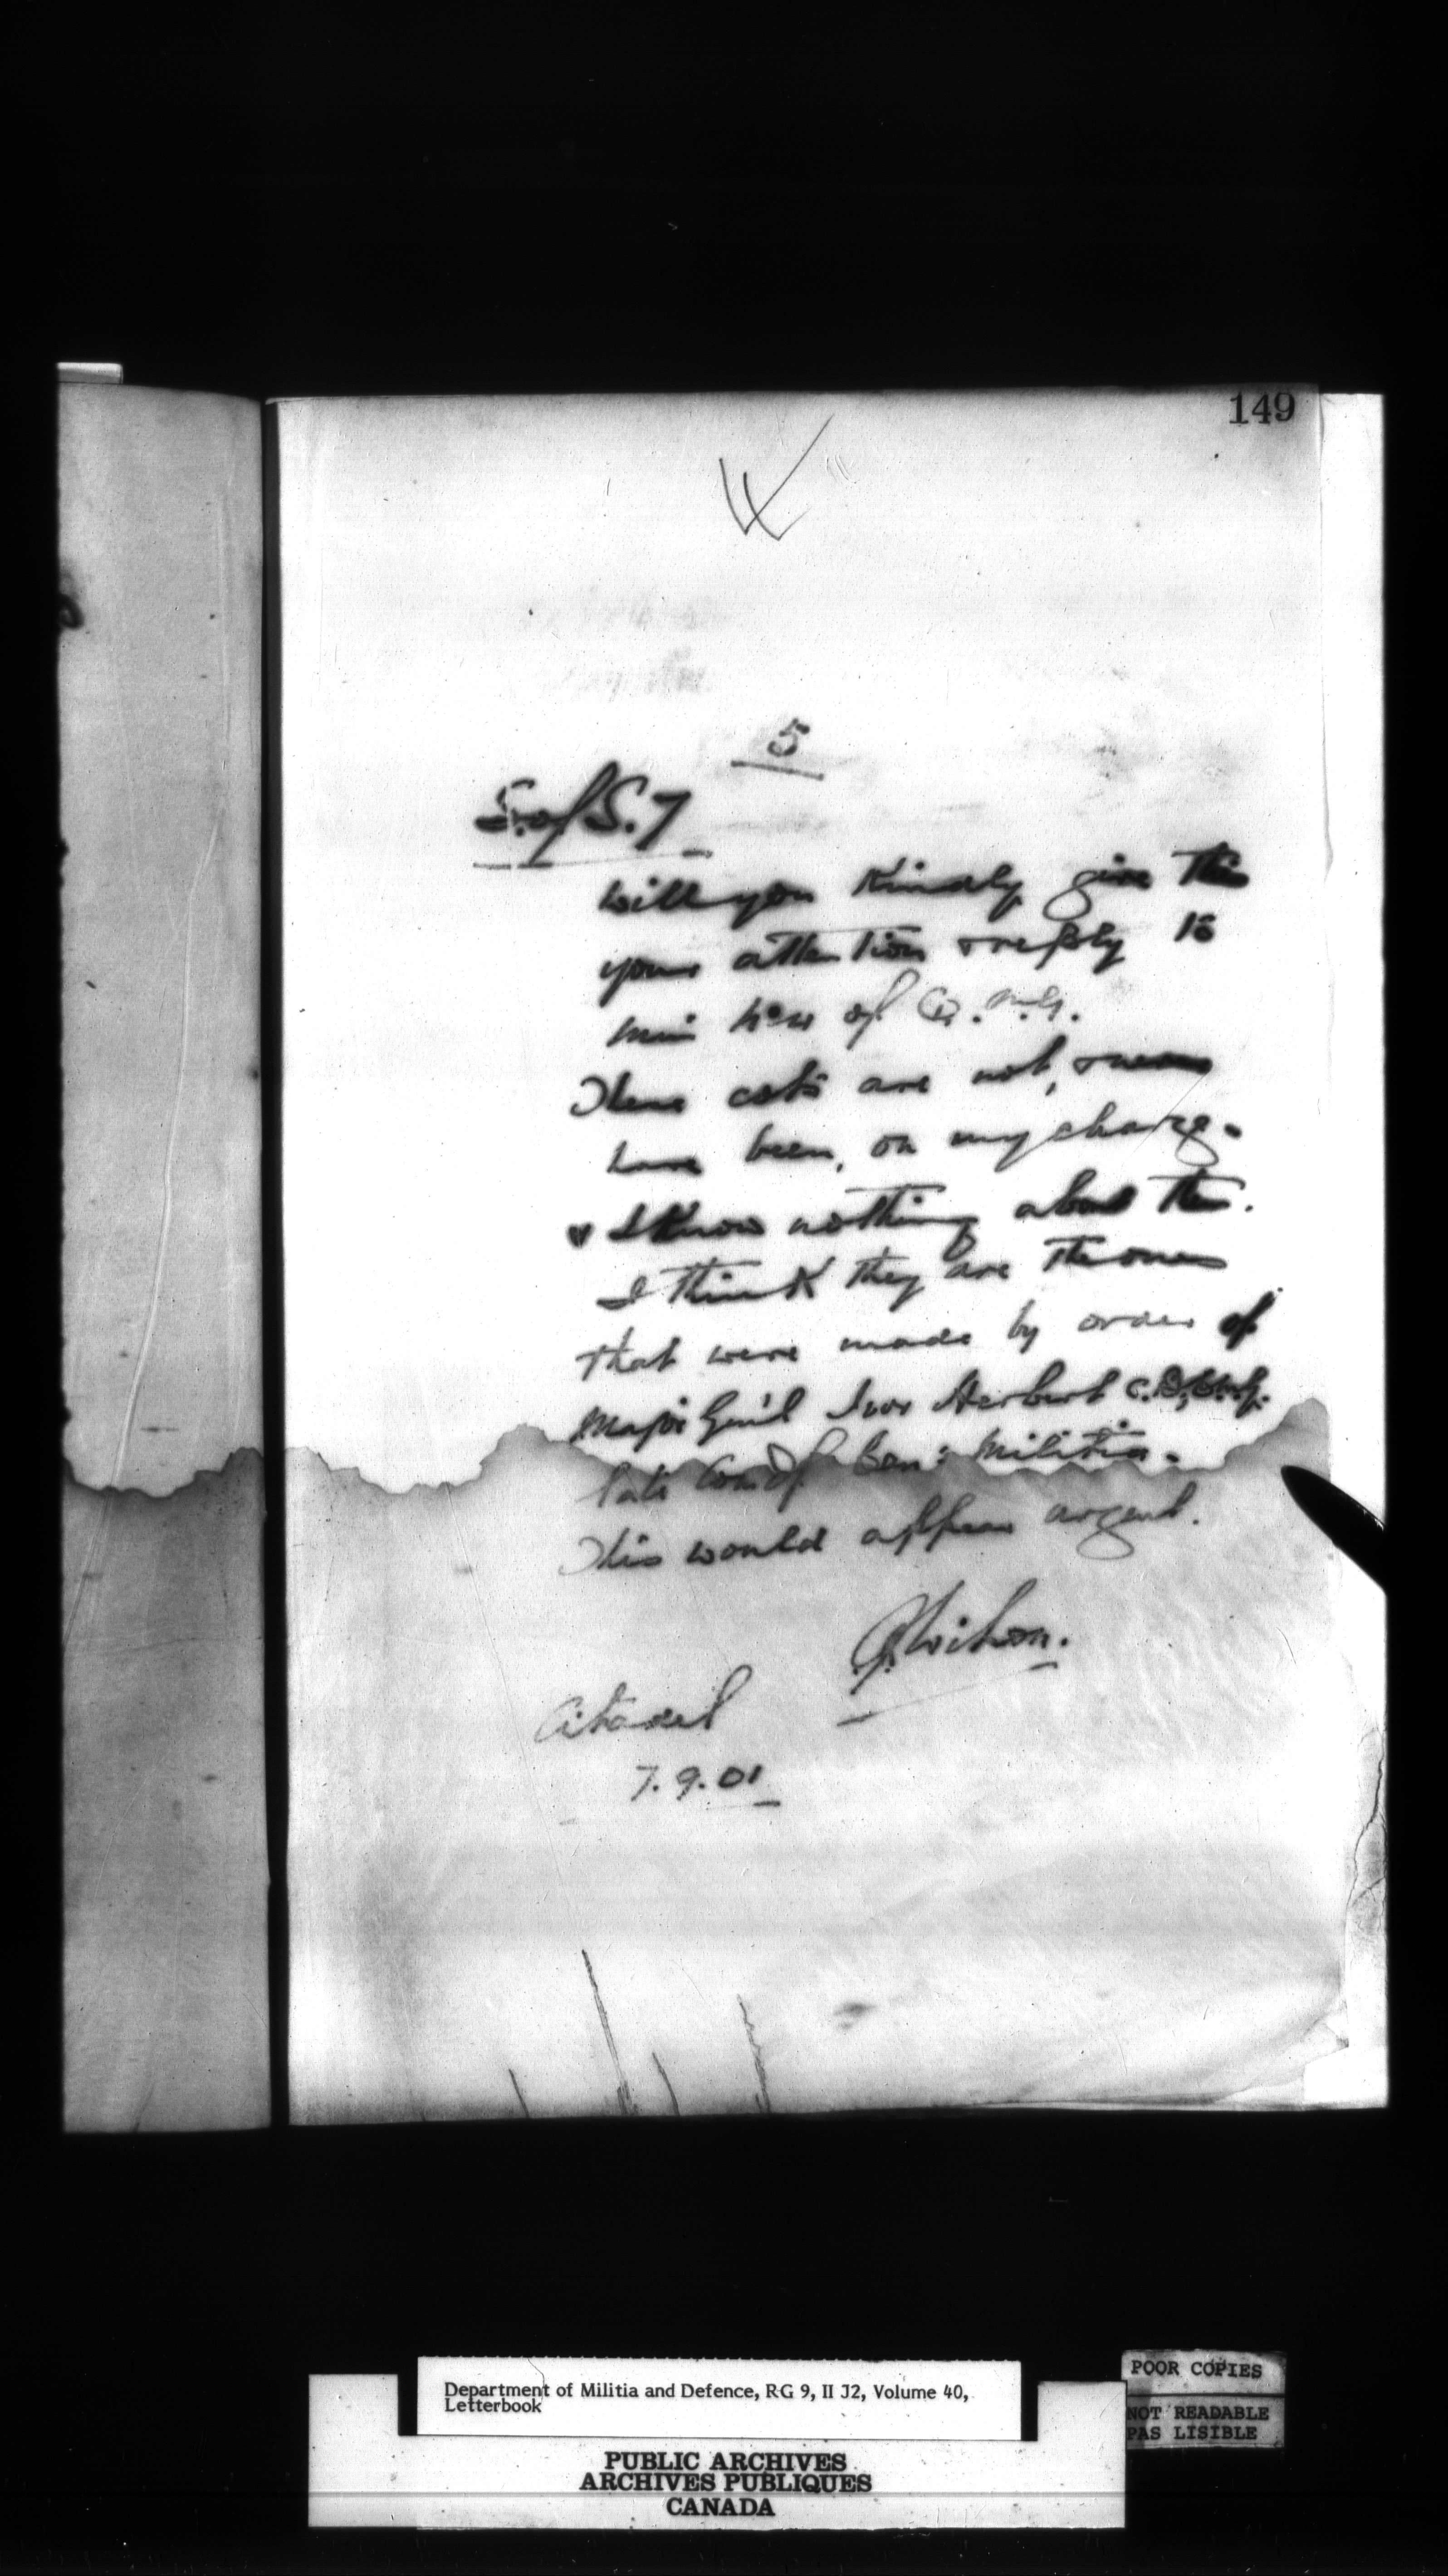 149
5
S. of S. 7
Will you Kindly give this
your attention & reply to
min of Q.M.G.
These cots are not, & never
have been, on my charge.
& I Know nothing about them.
I think they are the ones
that were made by order of
Major Gen'l Ivor Herbert C.B, C.M.G.
late Comd'g Can: Militia.
This would appear urgent.
Wilson.
Citadel
7.9.01
Department of Militia and Defence, RG 9, II J2, Volume 40,
Letterbook
POOR COPIES
NOT READABLE
PAS LISIBLE
PUBLIC ARCHIVES
ARCHIVES PUBLIQUES
CANADA